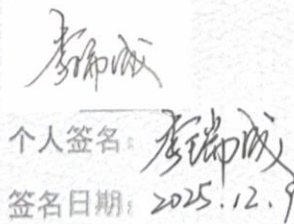 李瑞成
个人签名: 李瑞成
签名日期: 2025.12.9